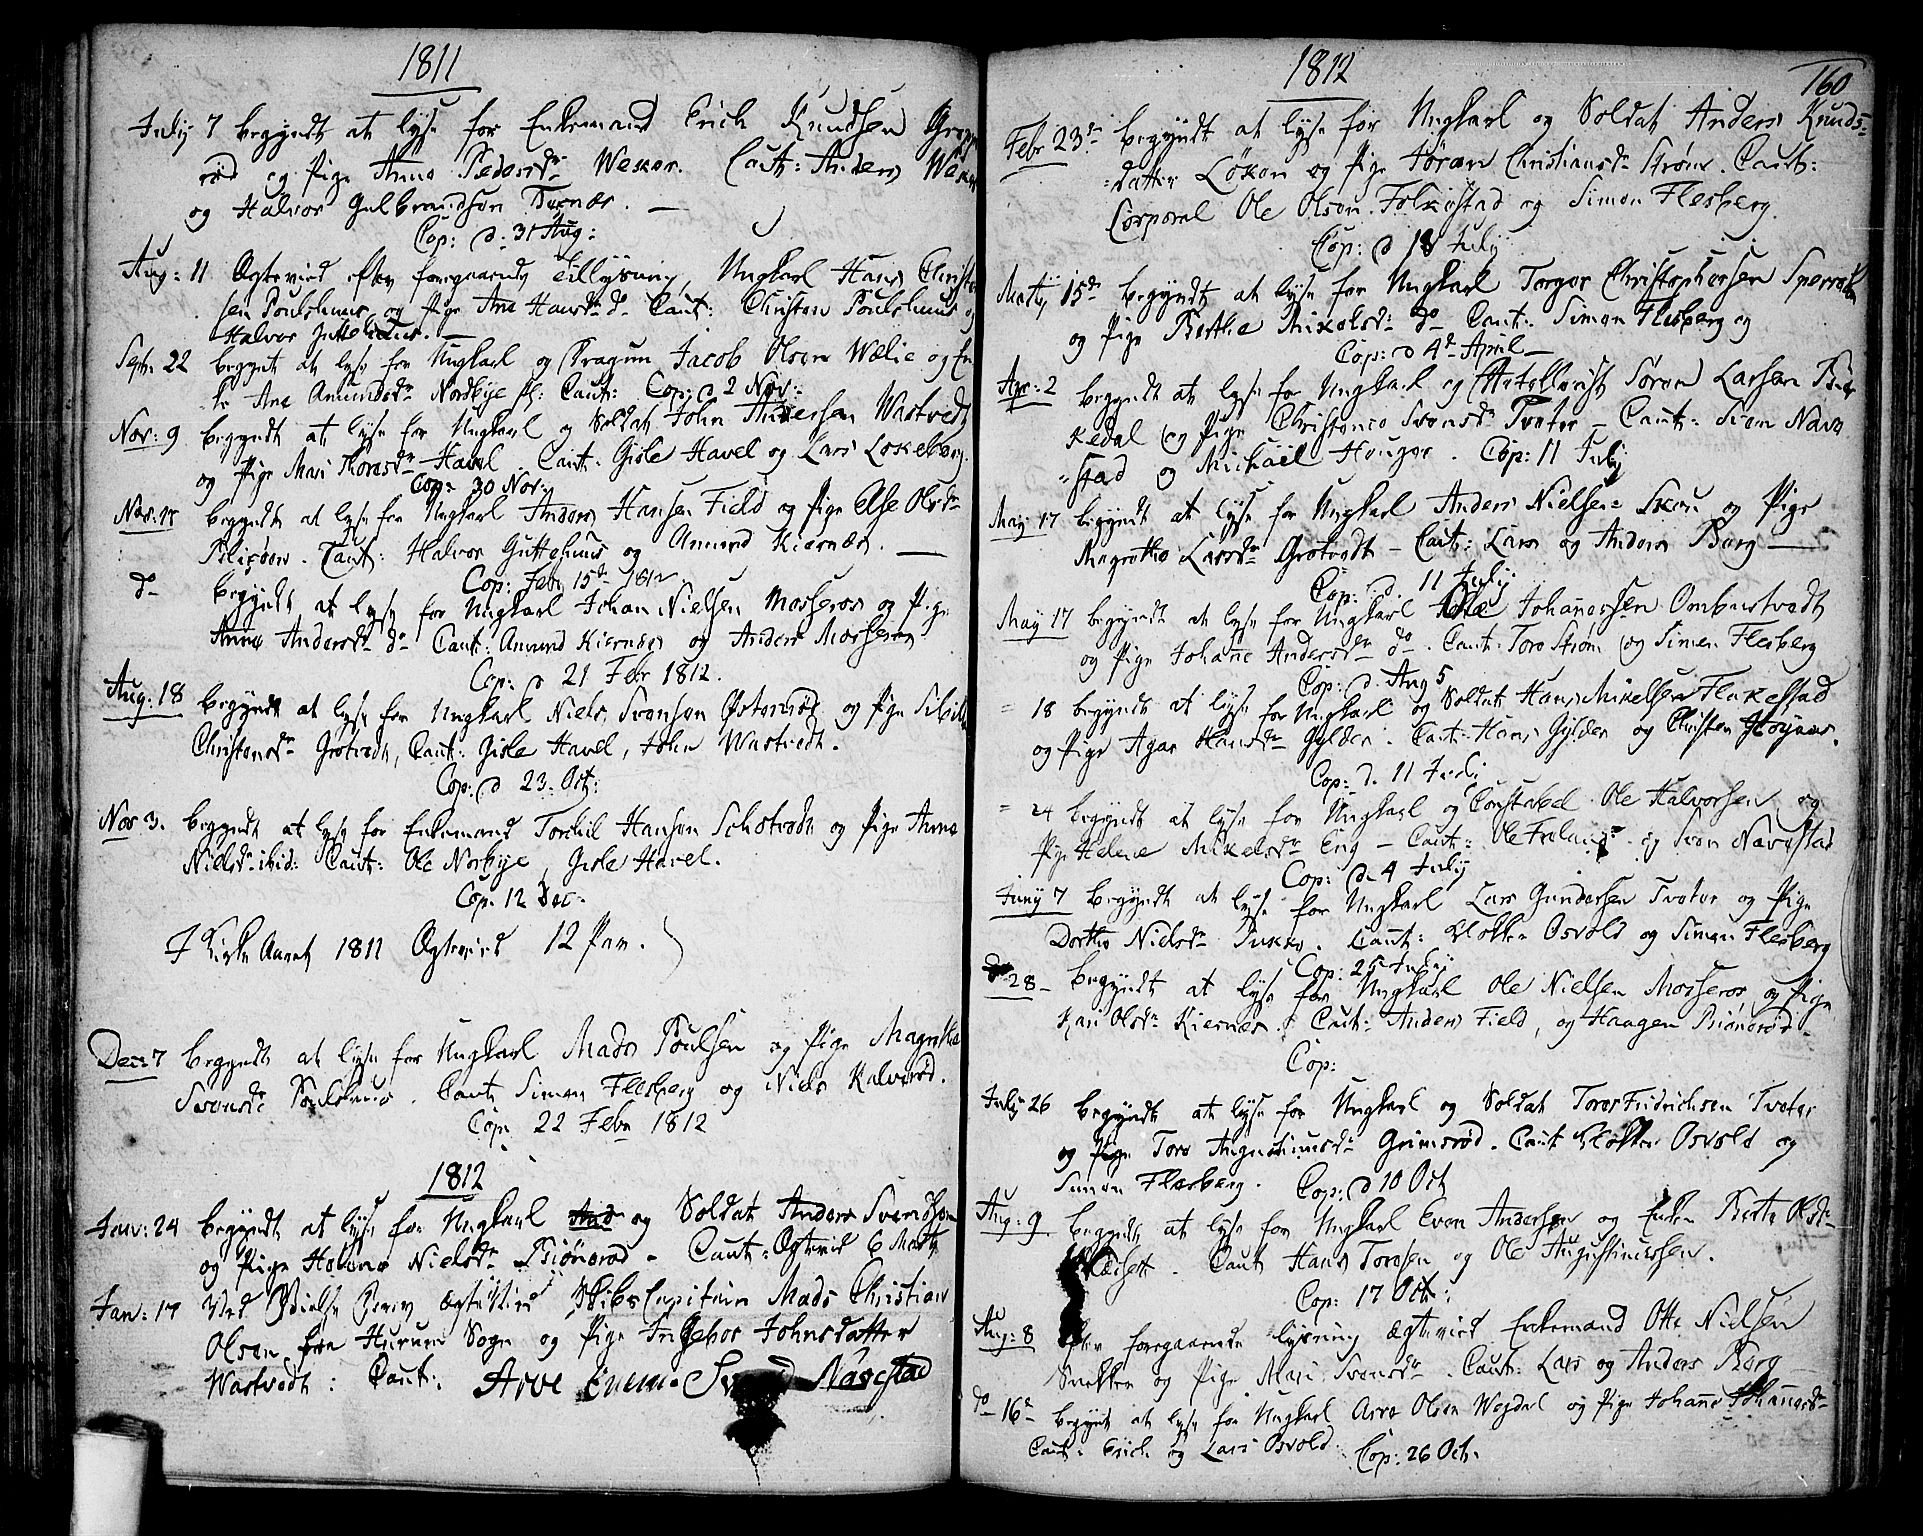 1811
July 7 begyndt at lyse for Enkemand Erich Knudsen
rød og Pige Anne Pedersdr Weker. Caut: Anders Weker
og Halvor Gulbrandsen Tternær.
Cop: d: 31 Aug:
Aug: 11 Ægtevied efter foregaaende Tillysning, Ungkarl Hans Christen
sen Poulshuus og Pige Ane Hansdr do Caut: Christen Poulshuus og
Halvor Guttehuus.
Septr 22 begynt at lyse for Ungkarl og Dragun Jacob Olsen Wælie og En
ke Ane Amundsdr Nordbye Caut: Cop: d 2 Nov:
Nov: 9 begyndt at lyse for Ungkarl og Soldat John Andersen Wastvedt
og Pige Mari Thoresdr Havel Caut: Gisle Havel og Lars Loskeberg.
Cop: 30 Nov:
Nov: begyndt at lyse for Ungkarl Anders Hansen Field og Pige Else Olsdr
Caut: Halvor Guttehuus og Amund Kiernæs.
Cop: Febr 15de 1812.
do begyndt at lyse for Ungkarl Johan Nielsen Mosseros og Pige
Anne Andersdr do Caut: Amund Kiernæs og Anders Mosseros
Cop: d 21 Febr 1812.
Aug: 18 begyndt at lyse for Ungkarl Niels Svensen Østenrød og Pige Sibille
Christensdr Grotvedt, Caut: Gisle Havel, John Wastvedt.
Cop: d 23. Oct:
Nov 3. begyndt at lyse for Enkemand Torchil Hansen Schotvedt og Pige Anne
Nielsdr ibid: Caut: Ole Norbye, Gisle Havel.
Cop. 12 Dec.
I Kirke Aaret 1811 Ægteviet 12 Par.
Decr 7 begyndt at lyse for Ungkarl Mads Poulsen og Pige Magrethe
Svensdr Poulshuus. Caut Simen Flesberg og Niels Kalverød.
Cop. 22 Febr 1812
1812
Janv: 24 begyndt at lyse for Ungkarl And og Soldat Anders Svendsen
og Pige Helene Nielsdr Biønerød. Caut: Ægtevied 6 Marty
Jan: 17 Ved Ægteviet Skibs Capitain Mads Christian
Olsen fra Hurum Sogn og Pige Ingebor Johnsdatter
Wastvedt: Caut: Arve Enem. Navestad
1812
160
Febr 23de begyndt at lyse for Ungkarl og Soldat Anders Knuds=
=datter Løken og Pige Jøran Christiansdr Strøm. Caut:
Corporal Ole Olsen Folkestad og Simen Flesberg.
Cop: d 18 July
Marty 15de begyndt at lyse for Ungkarl Torger Christophersen
og Pige Berthe Mikelsdr do Caut: Simen Flesberg og
Cop: d 4de April
Apr: 2 begyndt at lyse for Ungkarl og Artollerist Søren Larsen
kedal og Pige Christence Svensdr Tveter. Caut: Sven Nave
=stad og Michael Houger. Cop: 11 July
May 17 begyndt at lyse for Ungkarl Anders Nielsen Skou og Pige
Magrethe Larsdr Grotvedt. Caut: Lars og Anders Borg
Cop: d. 11 July
May 17 begyndt at lyse for Ungkarl Ole Johannessen Ombustvedt
og Pige Johanne Andersdr do. Caut: Tore Strøm og Simen Flesberg
Cop: d. Aug 5
= 18 begyndt at lyse for Ungkarl og Soldat Hans Mikelsen Flakestad
og Pige Agar Hansdr Gylder. Caut: Hans Gylder og Christen Høynes.
Cop: d. 11 July
= 24 begyndt at lyse for Ungkarl og Constabel Ole Halvorsen og
Pige Helene Mikelsdr Eng. Caut: Ole og Sven Navestad
Cop: d. 4 July
Juny 7 begyndt at lyse for Ungkarl Lars Gundersen Tveter og Pige
Dorthe Nielsdr Caut: Klokker Osvold og Simen Flesberg
Cop: 25 July
28 begyndt at lyse for Ungkarl Ole Nielsen Mosseros, og Pige
Kari Olsdr Kiernes. Caut: Anders Field, og Haagen Biønerød.
Cop:
July 26 begyndt at lyse for Ungkarl og Soldat Tores Fridrichsen Tveter
og Pige Tore Augustinusdr Grimsrød. Caut Klokker Osvold og
Simen Flesberg. Cop: d 10 Oct
Aug: 9 begyndt at lyse for Ungkarl Even Andersen og Enken Berte Olsdr
Caut Hans Toresen og Ole Augustinussen.
Cop: 17 Oct:
Aug: 8 efter foregaaende lysning ægtevied Enkemand Otte Nielsen
Snekker og Pige Mari Svensdr. Caut: Lars og Anders Borg
do 16de begynt at lyse for Ungkarl Arve Olsen Wejdal og Pige Johanne Johannesdr
Caut: Erich og Lars Osvold. Cop: 26 Oct.